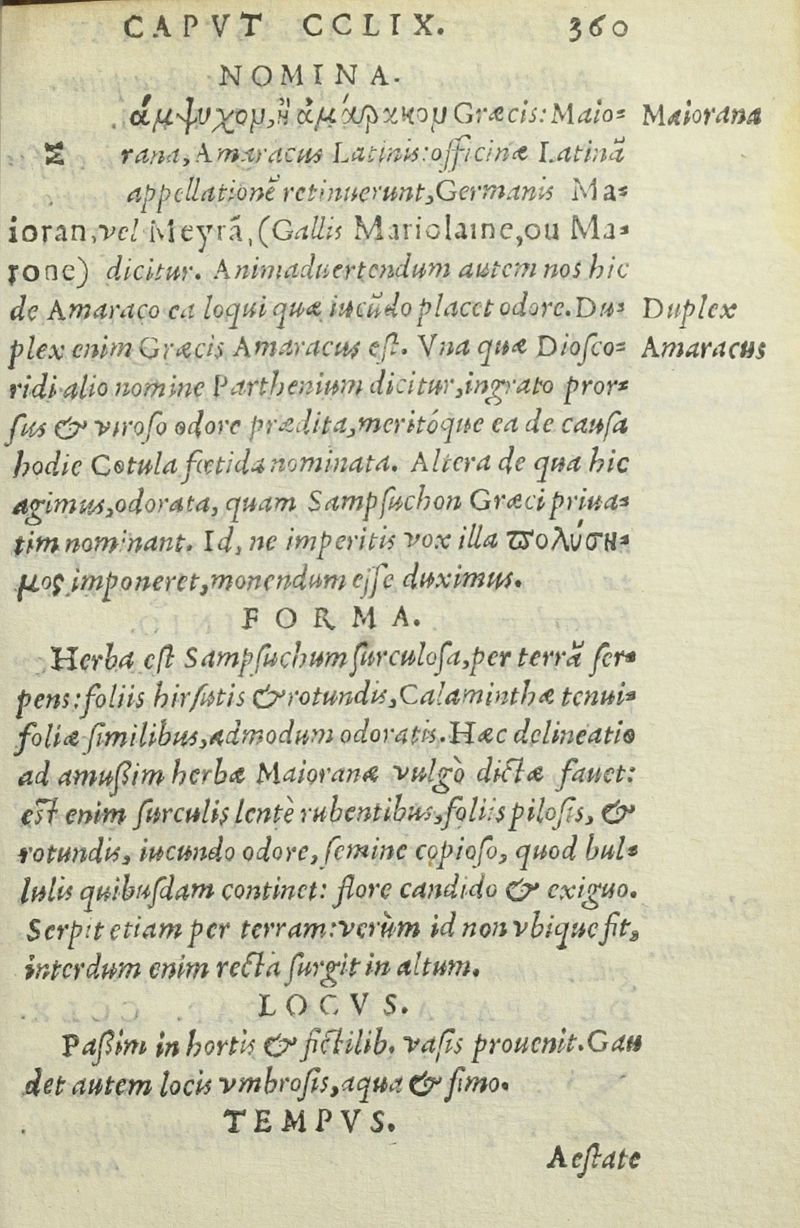 CAPVT CCLIX. 360
NOMINA.
Σ άμψυχομ,ἢ ἀμάρακομ Græcis: Maio= Maiorana
rana, Amaracus Latinis: officinæ Latinā
appellationē retinuerunt, Germanis Ma=
ioran, vel Meyrā, (Gallis Mariolaine, ou Ma=
rone) dicitur. Animaduertendum autem nos hic
de Amaraco ea loqui quæ iucūdo placet odore. Du= Duplex
plex enim Græcis Amaracus eſt. Vna quæ Dioſco= Amaracus
ridi alio nomine Parthenium dicitur, ingrato pror=
ſus & viroſo odore prædita, meritóque ea de cauſa
hodie Cotula fœtida nominata. Altera de qua hic
agimus, odorata, quam Sampſuchon Græci priua=
tim nominant. Id, ne imperitis vox illa πολύση=
μος imponeret, monendum eſſe duximus.
FORMA.
Herba eſt Sampſuchum ſurculoſa, per terrā ſer=
pens: foliis hirſutis & rotundis, Calaminthæ tenui=
foliæ ſimilibus, admodum odoratis. Hæc delineatio
ad amußim herbæ Maioranæ vulgò dictæ fauet:
eſt enim ſurculis lentè rubentibus, foliis piloſis, &
rotundis, iucundo odore, ſemine copioſo, quod bul=
lulis quibuſdam continet: flore candido & exiguo.
Serpit etiam per terram: verùm id non vbique fit,
interdum enim recta ſurgit in altum.
LOCVS.
Paßim in hortis & fictilib. vaſis prouenit. Gau
det autem locis vmbroſis, aqua & fimo.
TEMPVS.
Aeſtate